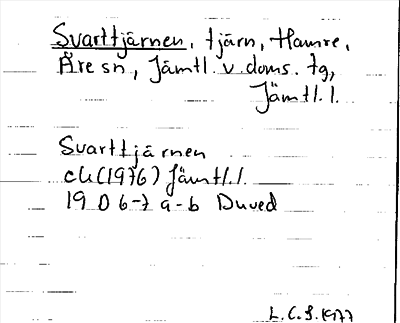 Svarttjärnen, tjärn, Hamre,
Åre sn, Jämtl. v. doms. tg,
Jämtl. l.
Svarttjärnen
ek (1976) Jämtl. l.
19 D 6-7 a-b Duved
L.C.S. 1977